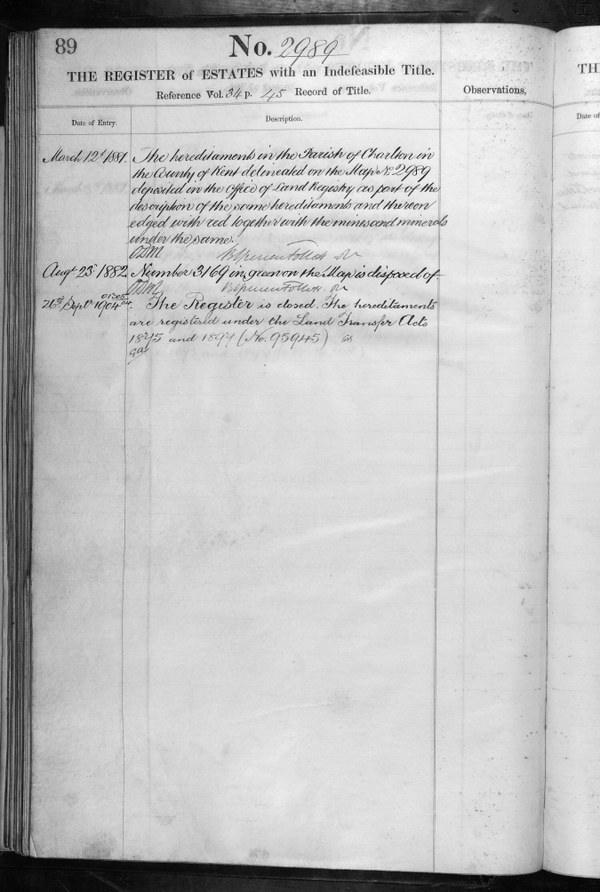 89
No. 2989
THE REGISTER of ESTATES with an Indefeasible Title.
Reference Vol. 34 p. 45 Record of Title.
Observations.
Date of Entry.
Description.
March 12th 1881.
The hereditaments in the Parish of Charlton in
the County of Kent delineated on the Map No 2989
deposited in the Office of Land Registry as part of the
description of the same hereditaments and thereon
edged with red together with the mines and minerals
under the same.
Augt 23d 1882.
Number 3169 in green on the Map is disposed of
26th Septr 1904.
The Register is closed. The hereditaments
are registered under the Land Transfer Acts
1875 and 1897 (No. 95945)
TH
Date of